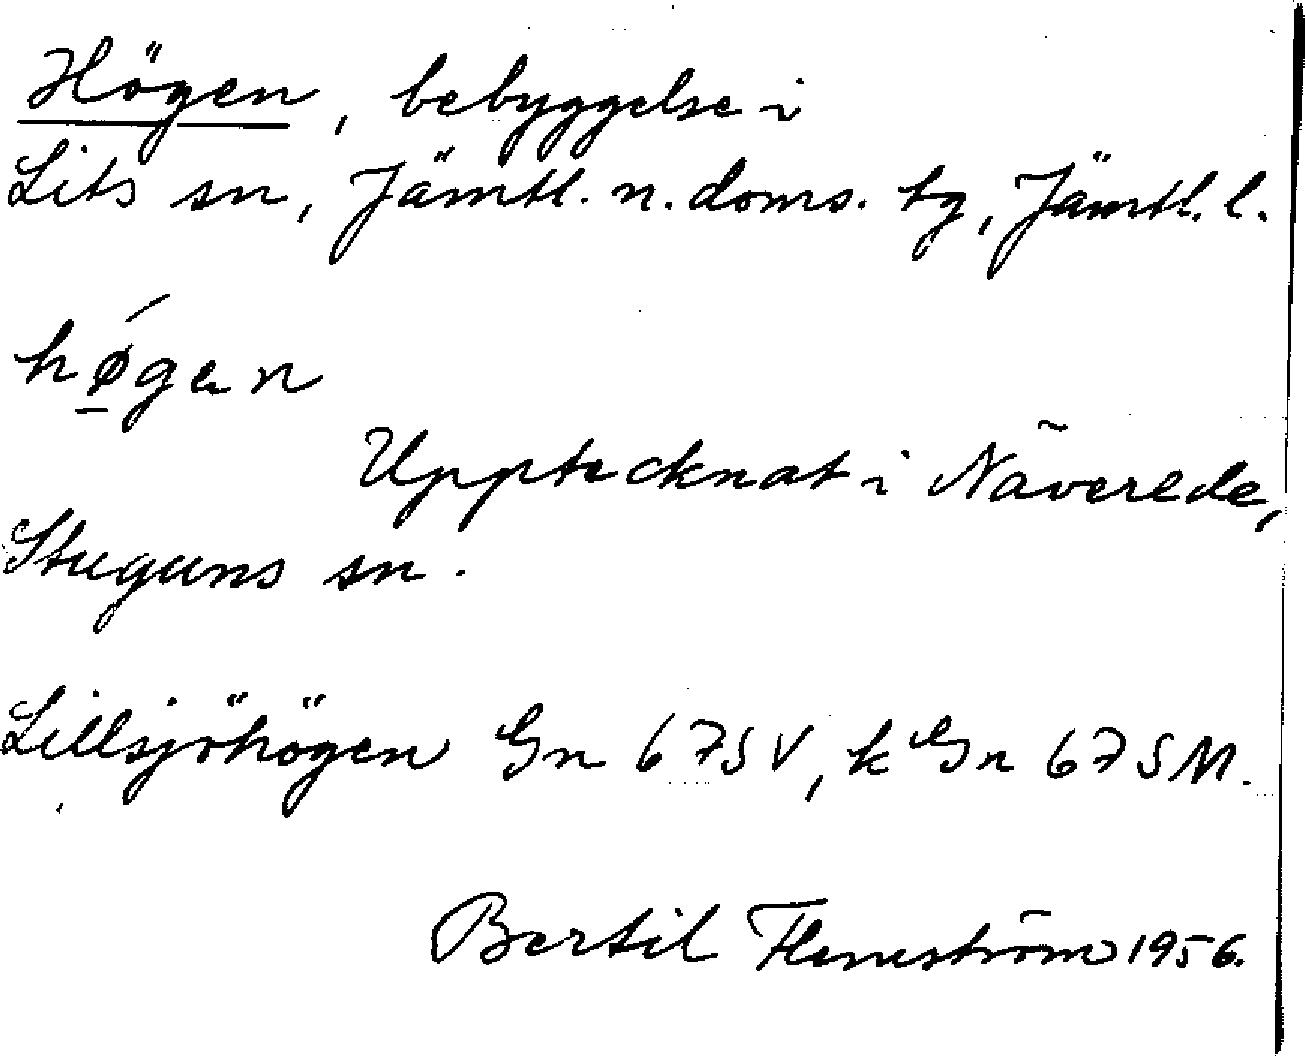 Högen, bebyggelse i
Lits sn, Jämtl. n. doms. tg, Jämtl. l.
hǿ̲gen
Upptecknat i Näverede,
Stuguns sn.
Lillsjöhögen Gn 67SV, k Gn 67SM.
Bertil Flemström 1956.